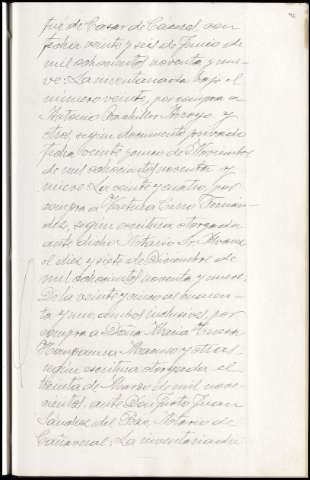 fué de Casar de Cáceres, con
fecha veinte y seis de Junio de
mil ochocientos noventa y nue-
ve: La inventariada bajo el
número veinte, por compra a
Antonio Bonhiller Arroyo y
otros, según documento privado
fecha veinte y cinco de Noviembre
de mil ochocientos noventa y
nueve: La veinte y cuatro, por
compra a Ventura Cano Fernán-
dez, según escritura otorgada
ante dicho Notario Sr. Alvarez
el diez y siete de Diciembre de
mil ochocientos noventa y nueve.
De la veinte y cinco al
ta y uno, ambos inclusives, por
compra a Doña María Teresa
y otros,
según escritura otorgada el
treinta de Marzo de mil nove-
cientos, ante Don Justo Juan
Sánchez del Pozo, Notario de
Cañaveral. La inventariada